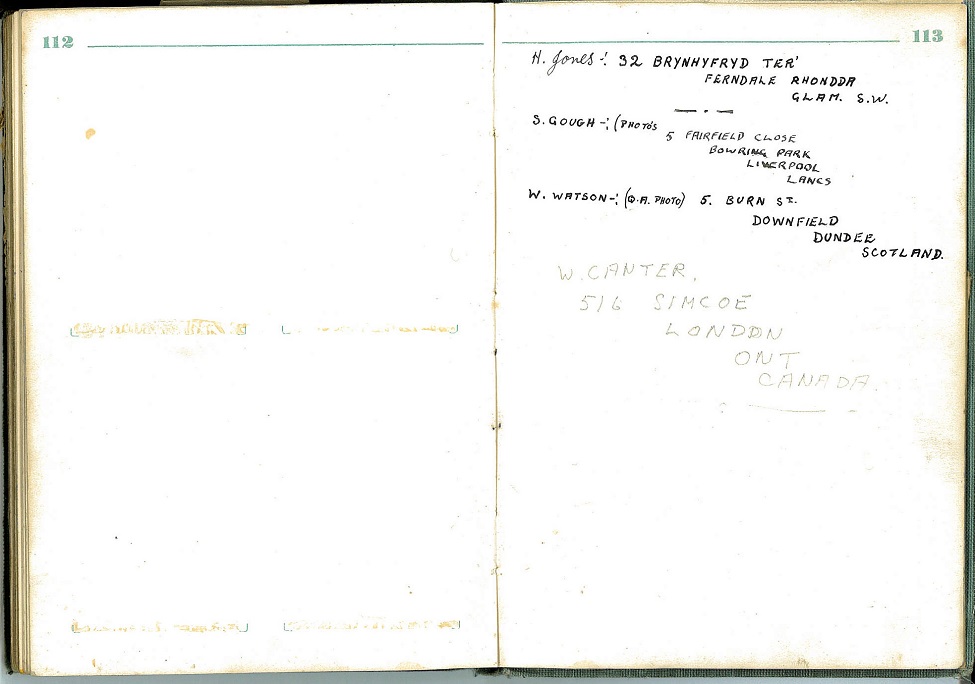 112
113
H. Jones -: 32 BRYNHYFRYD TER'
FERNDALE RHONDDA
GLAM. S.W.
S. GOUGH -: (PHOTO'S
5 FAIRFIELD CLOSE
BOWRING PARK
LIVERPOOL
LANCS
W. WATSON -: (Q.A. PHOTO) 5. BURN ST.
DOWNFIELD
DUNDEE
SCOTLAND.
W. CANTER.
516 SIMCOE
LONDON
ONT
CANADA.